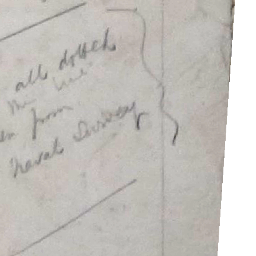 all dotted
line
from
Naval Survey